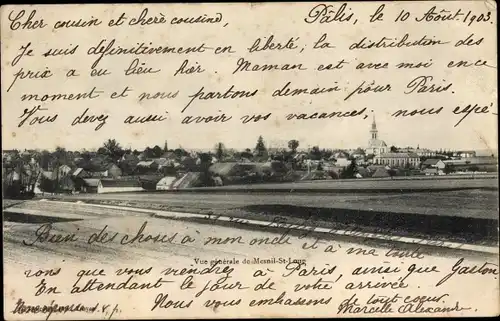 Cher cousin et chère cousine, Pâlis, le 10 Août 1903.
Je suis définitivement en liberté, la distribution des
prix a eu lieu hier. Maman est avec moi en ce
moment et nous partons demain pour Paris.
Vous devez aussi avoir vos vacances, nous espé-
Bien des choses à mon oncle et à ma tante
Vue générale de Mesnil-St-Loup
rons que vous viendrez à Paris, ainsi que Gaston.
En attendant le jour de votre arrivée
Nous vous embrassons de tout cœur,
Réponse s. v. p. Marcelle Alexand